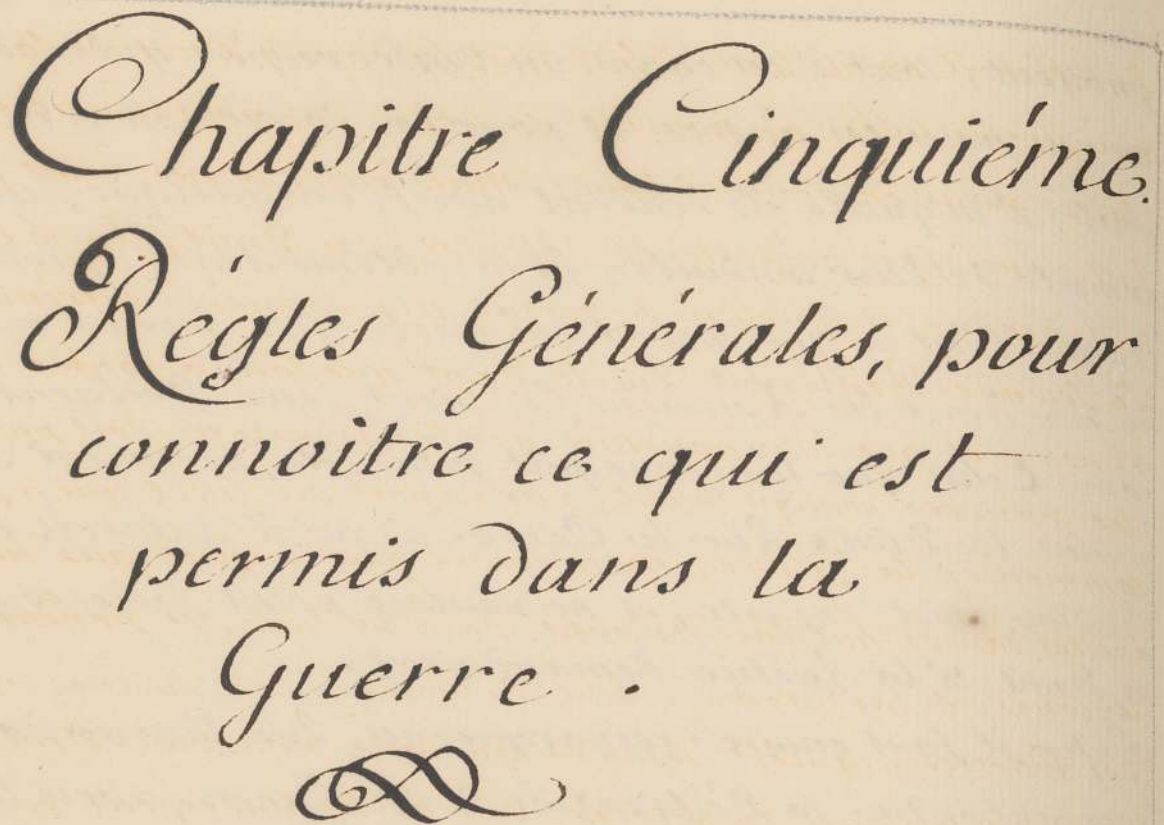 Chapitre Cinquiéme.
Régles Générales, pour
connoitre ce qui est
permis dans la
Guerre.